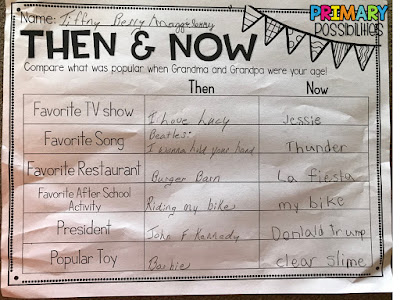 PRIMARY
POSSIBILITIES
Name: Tiffny Perry Maggie
THEN & NOW
Compare what was popular when Grandma and Grandpa were your age!
Then Now
Favorite TV show I Love Lucy Jessie
Favorite Song Beatles: I wanna hold your hand Thunder
Favorite Restaurant Burger Barn La Fiesta
Favorite After School Activity Riding my bikes my bike
President John F Kennedy Donlald trump
Popular Toy Barbie clear slime